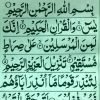 بِسْمِ اللهِ الرَّحْمٰنِ الرَّحِيْمِ
يٰسٓ وَالْقُرْاٰنِ الْحَكِيْمِ اِنَّكَ
لَمِنَ الْمُرْسَلِيْنَ عَلٰى صِرَاطٍ
مُّسْتَقِيْمٍ تَنْزِيْلَ الْعَزِيْزِ الرَّحِيْمِ
لِتُنْذِرَ قَوْمًا مَّآ اُنْذِرَ اٰبَآؤُهُمْ